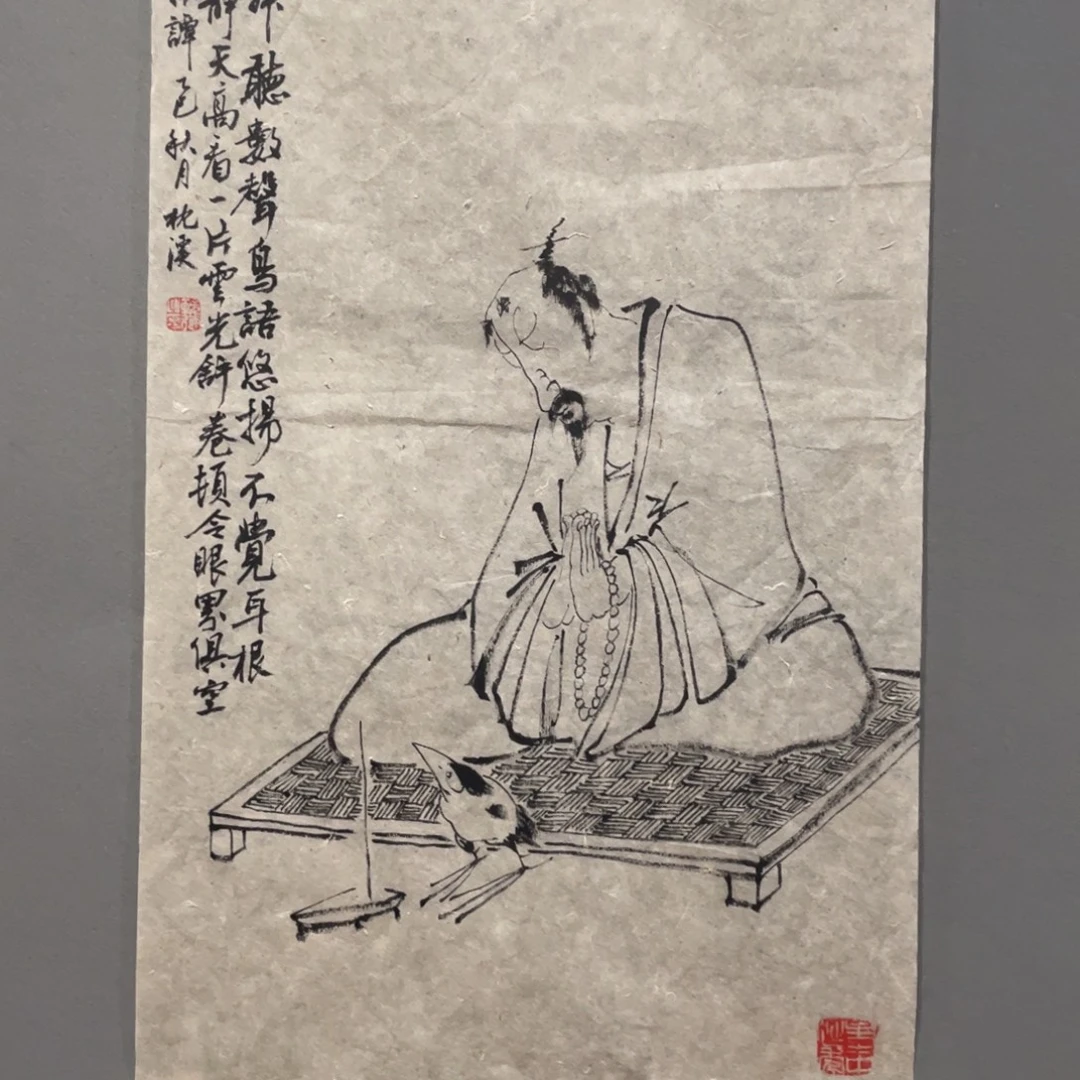 聽數聲鳥語悠揚不覺耳根
靜天高看一片雲光舒卷頓令眼界俱空
譚乙巳秋月枕溪